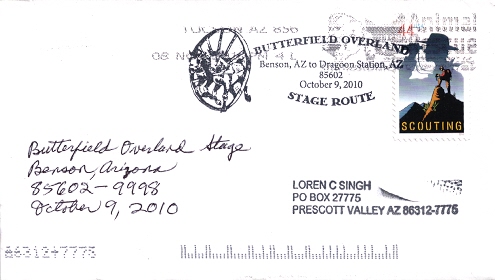 TUCSON AZ 856
BUTTERFIELD OVERLAND
Benson, AZ to Dragoon Station, AZ
85602
October 9, 2010
STAGE ROUTE
44
SCOUTING
Butterfield Overland Stage
Benson, Arizona
85602-9998
October 9, 2010
LOREN C SINGH
PO BOX 27775
PRESCOTT VALLEY AZ 86312-7775
86312+7775